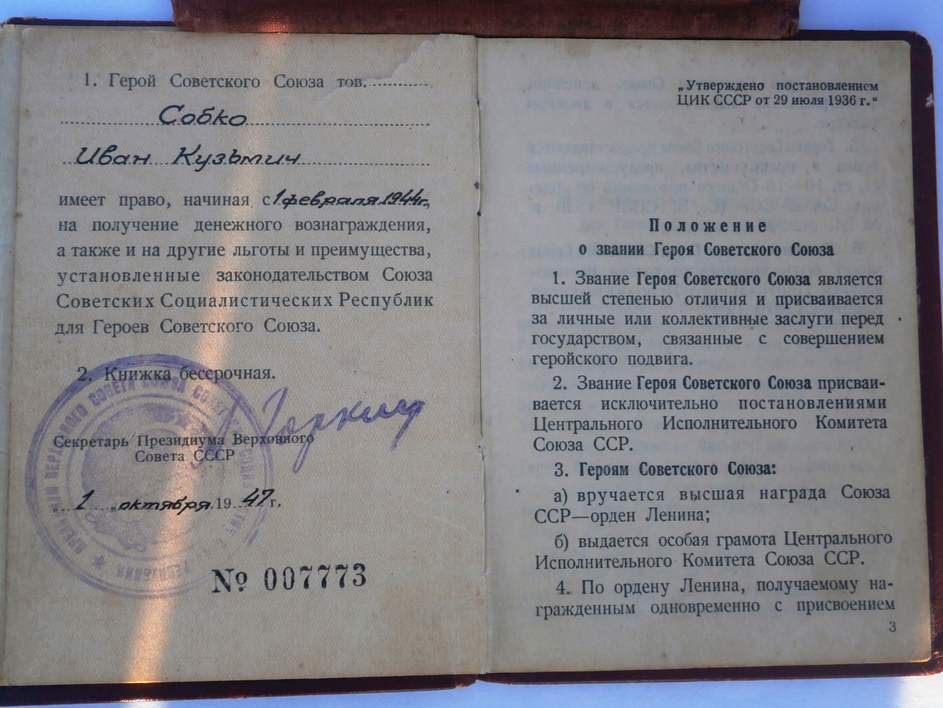 1. Герой Советского Союза тов.
Собко
Иван Кузьмич
имеет право, начиная с 1 февраля 1944г.
на получение денежного вознаграждения,
а также и на другие льготы и преимущества,
установленные законодательством Союза
Советских Социалистических Республик
для Героев Советского Союза.
2. Книжка бессрочная.
Секретарь Президиума Верховного
Совета СССР
„1„ октября 1947 г.
№ 007773
„Утверждено постановлением
ЦИК СССР от 29 июля 1936 г.“
Положение
о звании Героя Советского Союза
1. Звание Героя Советского Союза является
высшей степенью отличия и присваивается
за личные или коллективные заслуги перед
государством, связанные с совершением
геройского подвига.
2. Звание Героя Советского Союза присваи-
вается исключительно постановлениями
Центрального Исполнительного Комитета
Союза ССР.
3. Героям Советского Союза:
а) вручается высшая награда Союза
ССР—орден Ленина;
б) выдается особая грамота Центрального
Исполнительного Комитета Союза ССР.
4. По ордену Ленина, получаемому на-
гражденным одновременно с присвоением
3